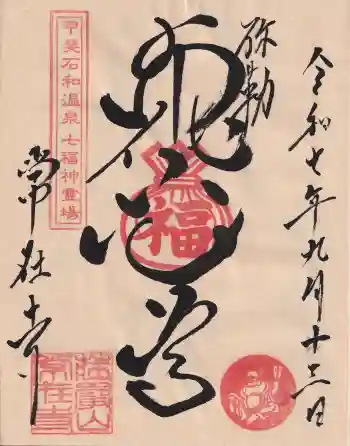 令和七年九月十六日
弥勒
布袋尊
福
甲斐石和温泉七福神霊場
常在寺
常在寺